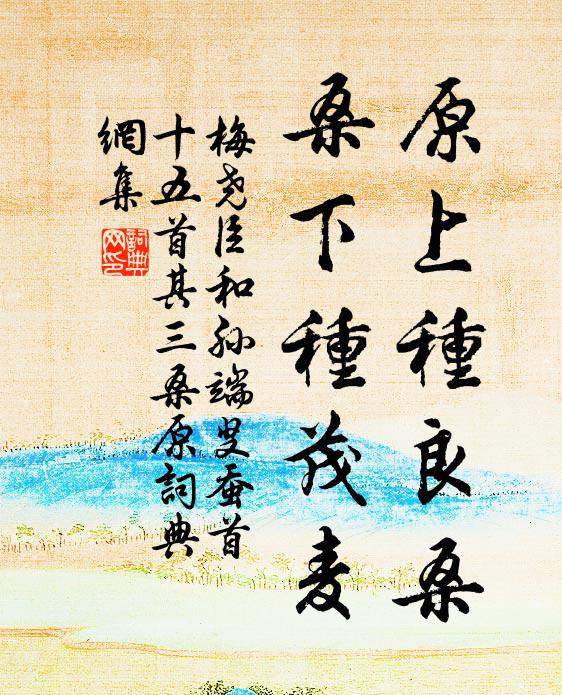 原上種良桑
桑下種茂麦
梅堯臣和孙端叟蚕首
十五首其三桑原詞典
網集
詞典
网印